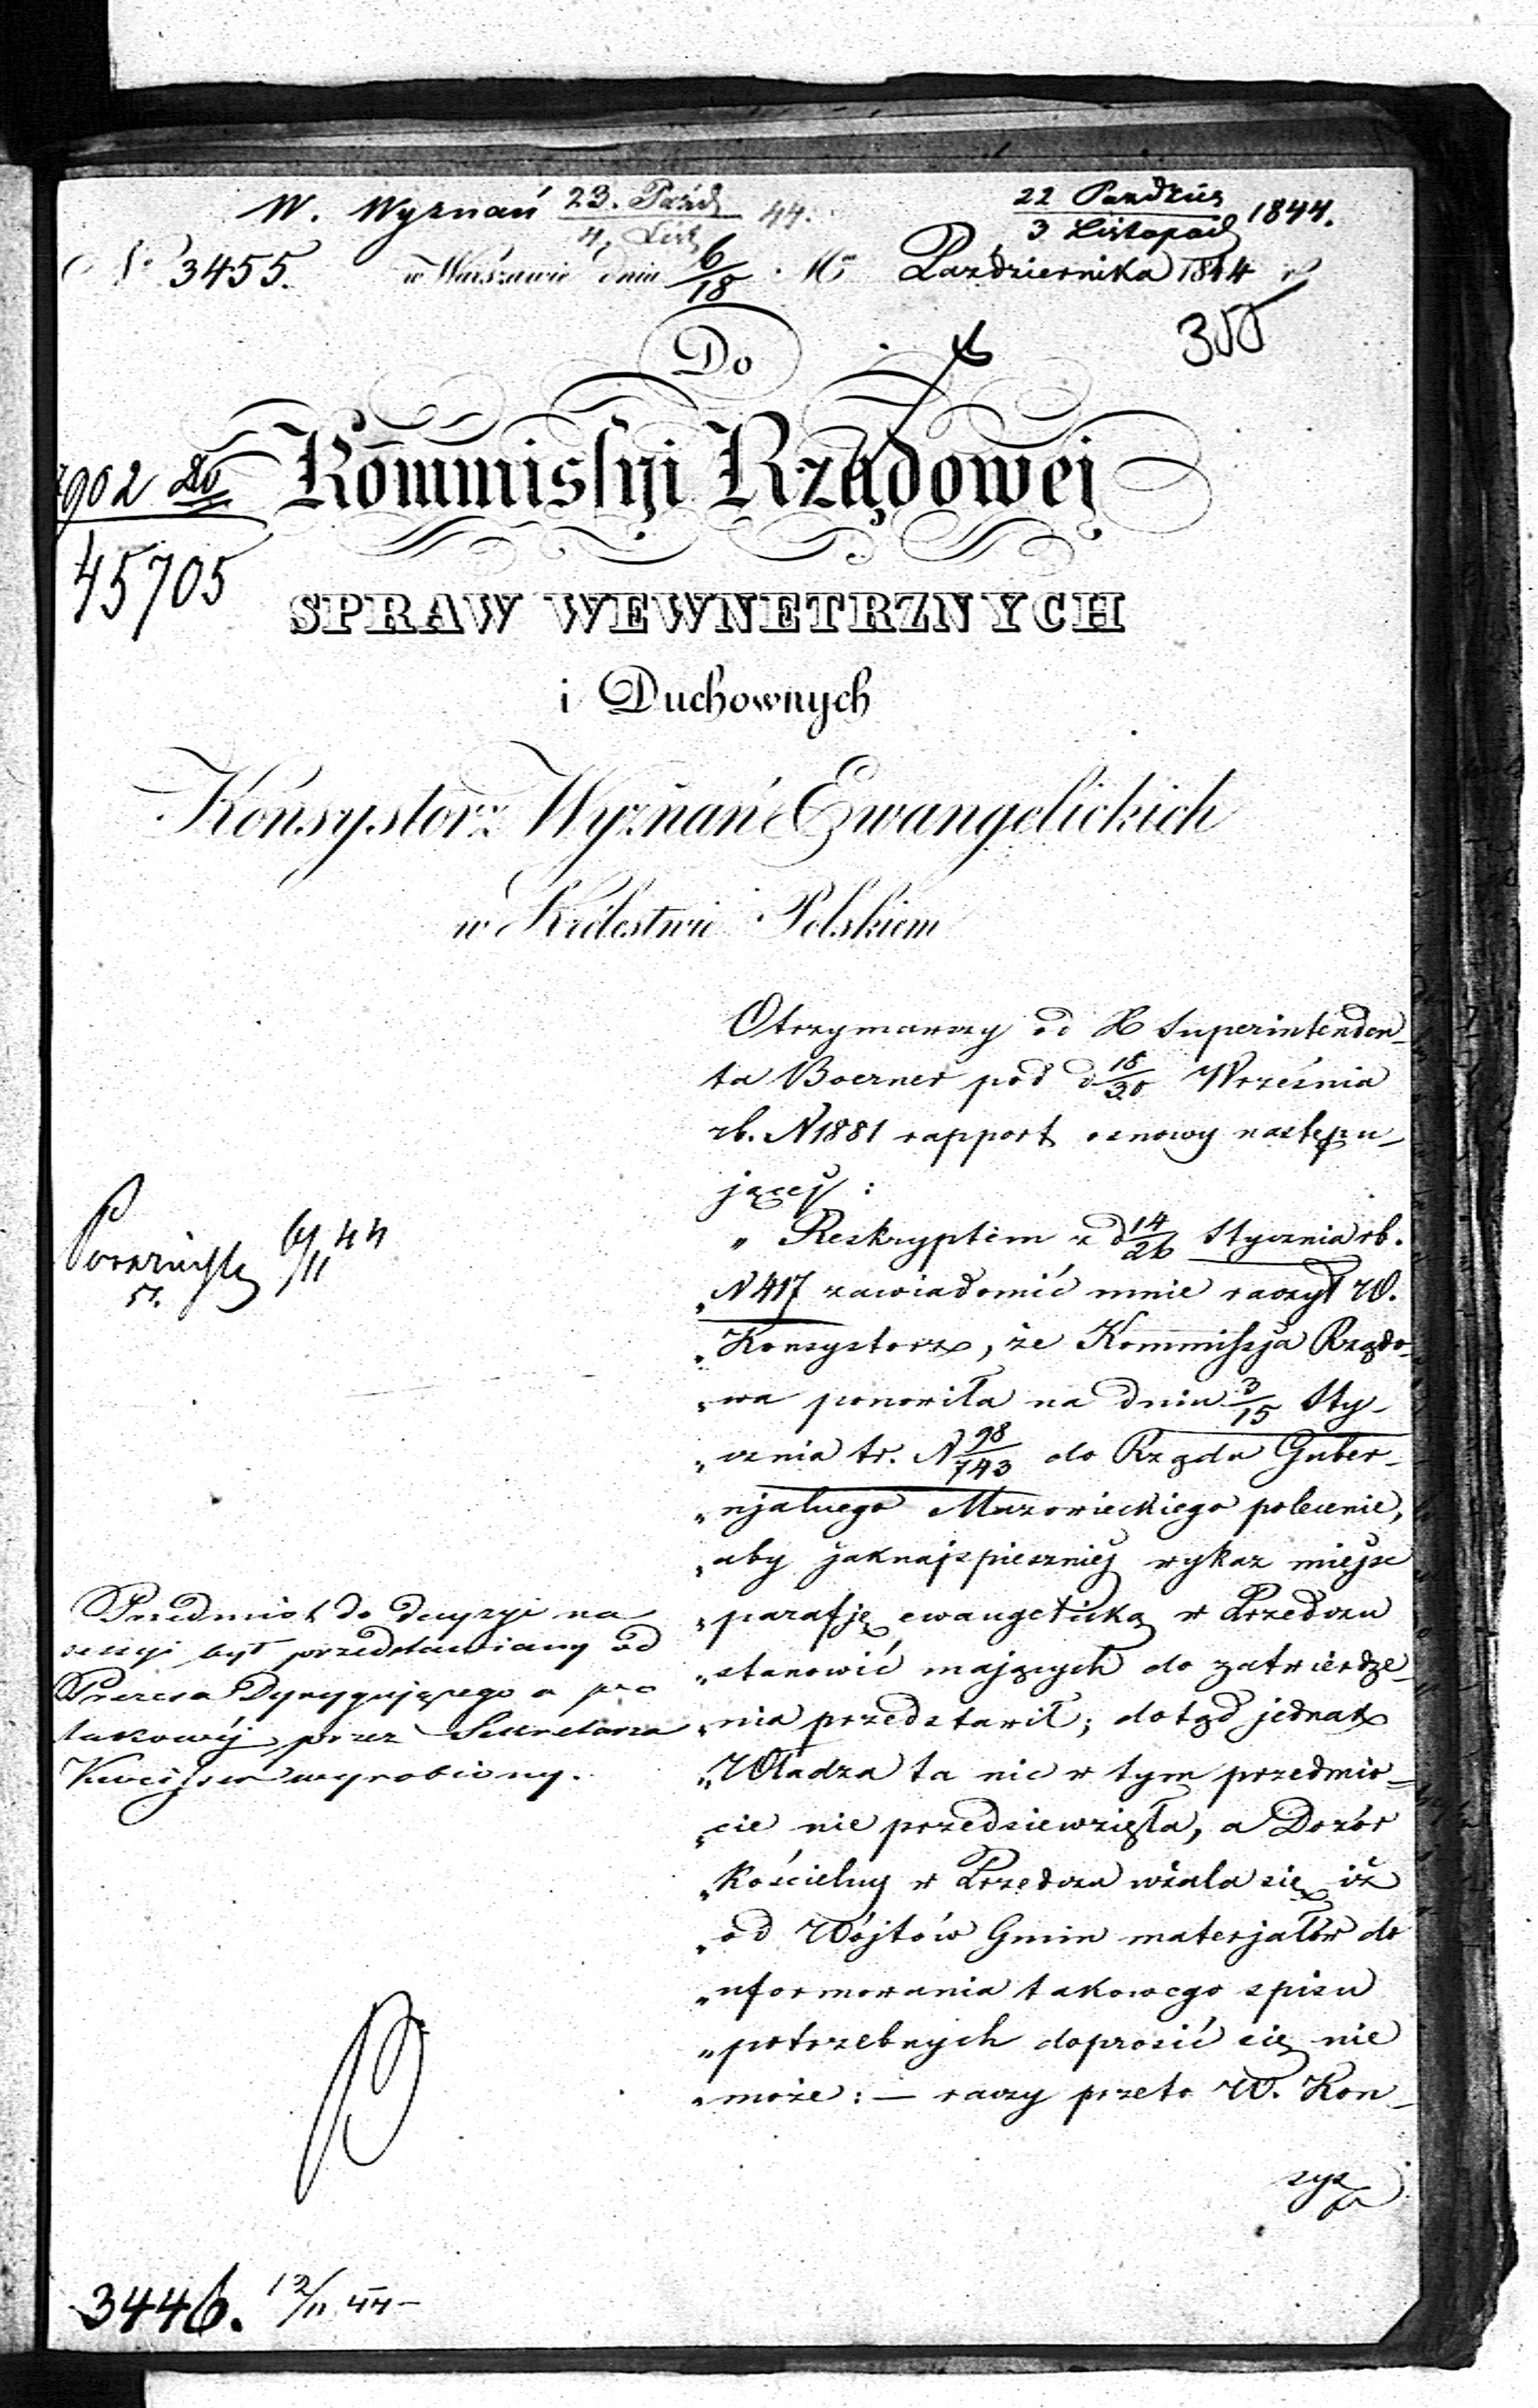 W. Wyznań 23. Paźd / 4. List 44.
22 Paździer / 3 Listopad 1844.
No 3455. w Warszawie dnia 6/18 Mca Pazdziernika 1844 r
355
Do
Kommissyi Rządowej
902 Do
45705
SPRAW WEWNETRZNYCH
i Duchownych
Konsystorz Wyznań Ewangelickich
w Królestwie Polskiem
Otrzymawszy od X Superintenden-
ta Boerner pod d 18/30 Września
rb. N 1881 rapport osnowy następu-
jącej:
„Reskryptem z d 14/26 Stycznia rb.
„N 417 zawiadomić mnie raczył W.
„Konsystorz, że Kommissja Rządo-
„wa ponowiła na dniu 3/15 Sty-
„cznia tr. N 98/743 do Rządu Guber-
„njalnego Mazowieckiego polecenie,
„aby jaknajspieszniej wykaz miejsc
„parafję ewangelicką w Przedczu
„stanowić mających do zatwierdze-
„nia przedstawił; dotąd jednak
„Władza ta nic w tym przedmio-
„cie nie przedsiewzięła, a Dozór
„Kościelny w Przedczu użala się iż
„od Wójtów Gmin materjałów do
„uformowania takowego spisu
„potrzebnych doprosić się nie
„może: — raczy przeto W. Kon-
sys
6/11 44
Przedmiot do decyzyi na
sessyi był przedstawiany od
Prezesa Dyrygującego a pro
takowy przez Sekretarza
wyrobiony.
3446. 12/11 44